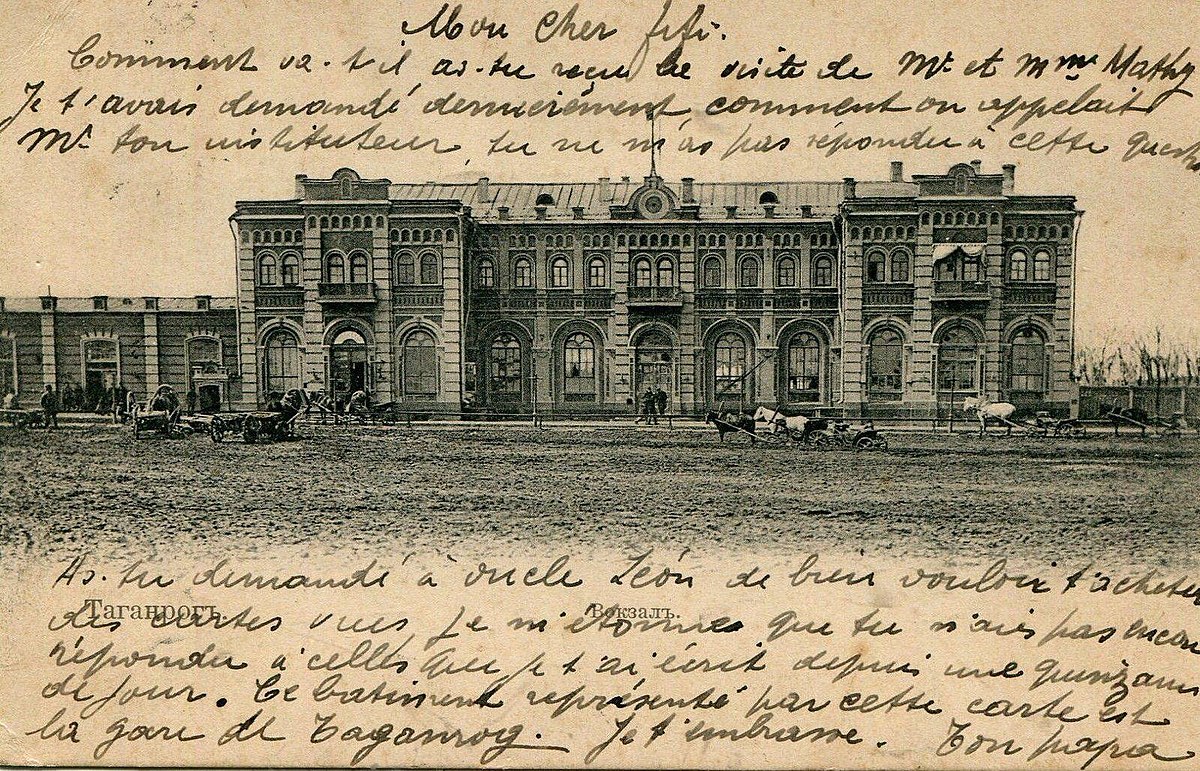 Mon cher fifi.
Comment va-t'il as-tu reçu la visite de Mr et Mme Mathy
Je t'avais demandé dernièrement comment on appelait
Mr ton instituteur, tu ne m'as pas répondu à cette quest
As-tu demandé à oncle Léon de bien vouloir t'acheter
Таганрогъ. Вокзалъ.
des cartes vues, Je m'étonne que tu n'aies pas encor
répondu à celles que je t'ai écrit depuis une quinzaine
de jour. Ce batiment représenté par cette carte est
la gare de Taganrog. Je t'embrasse. Ton papa